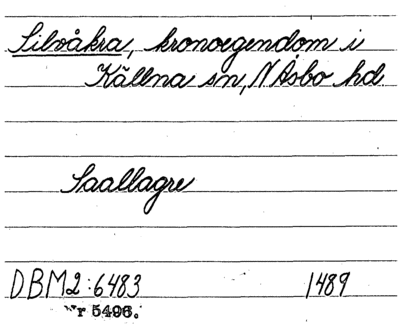 Silvåkra, kronoegendom i
Källna sn, N Åsbo hd.
Saallagre
DBM2:6483 1489
Nr 5496.